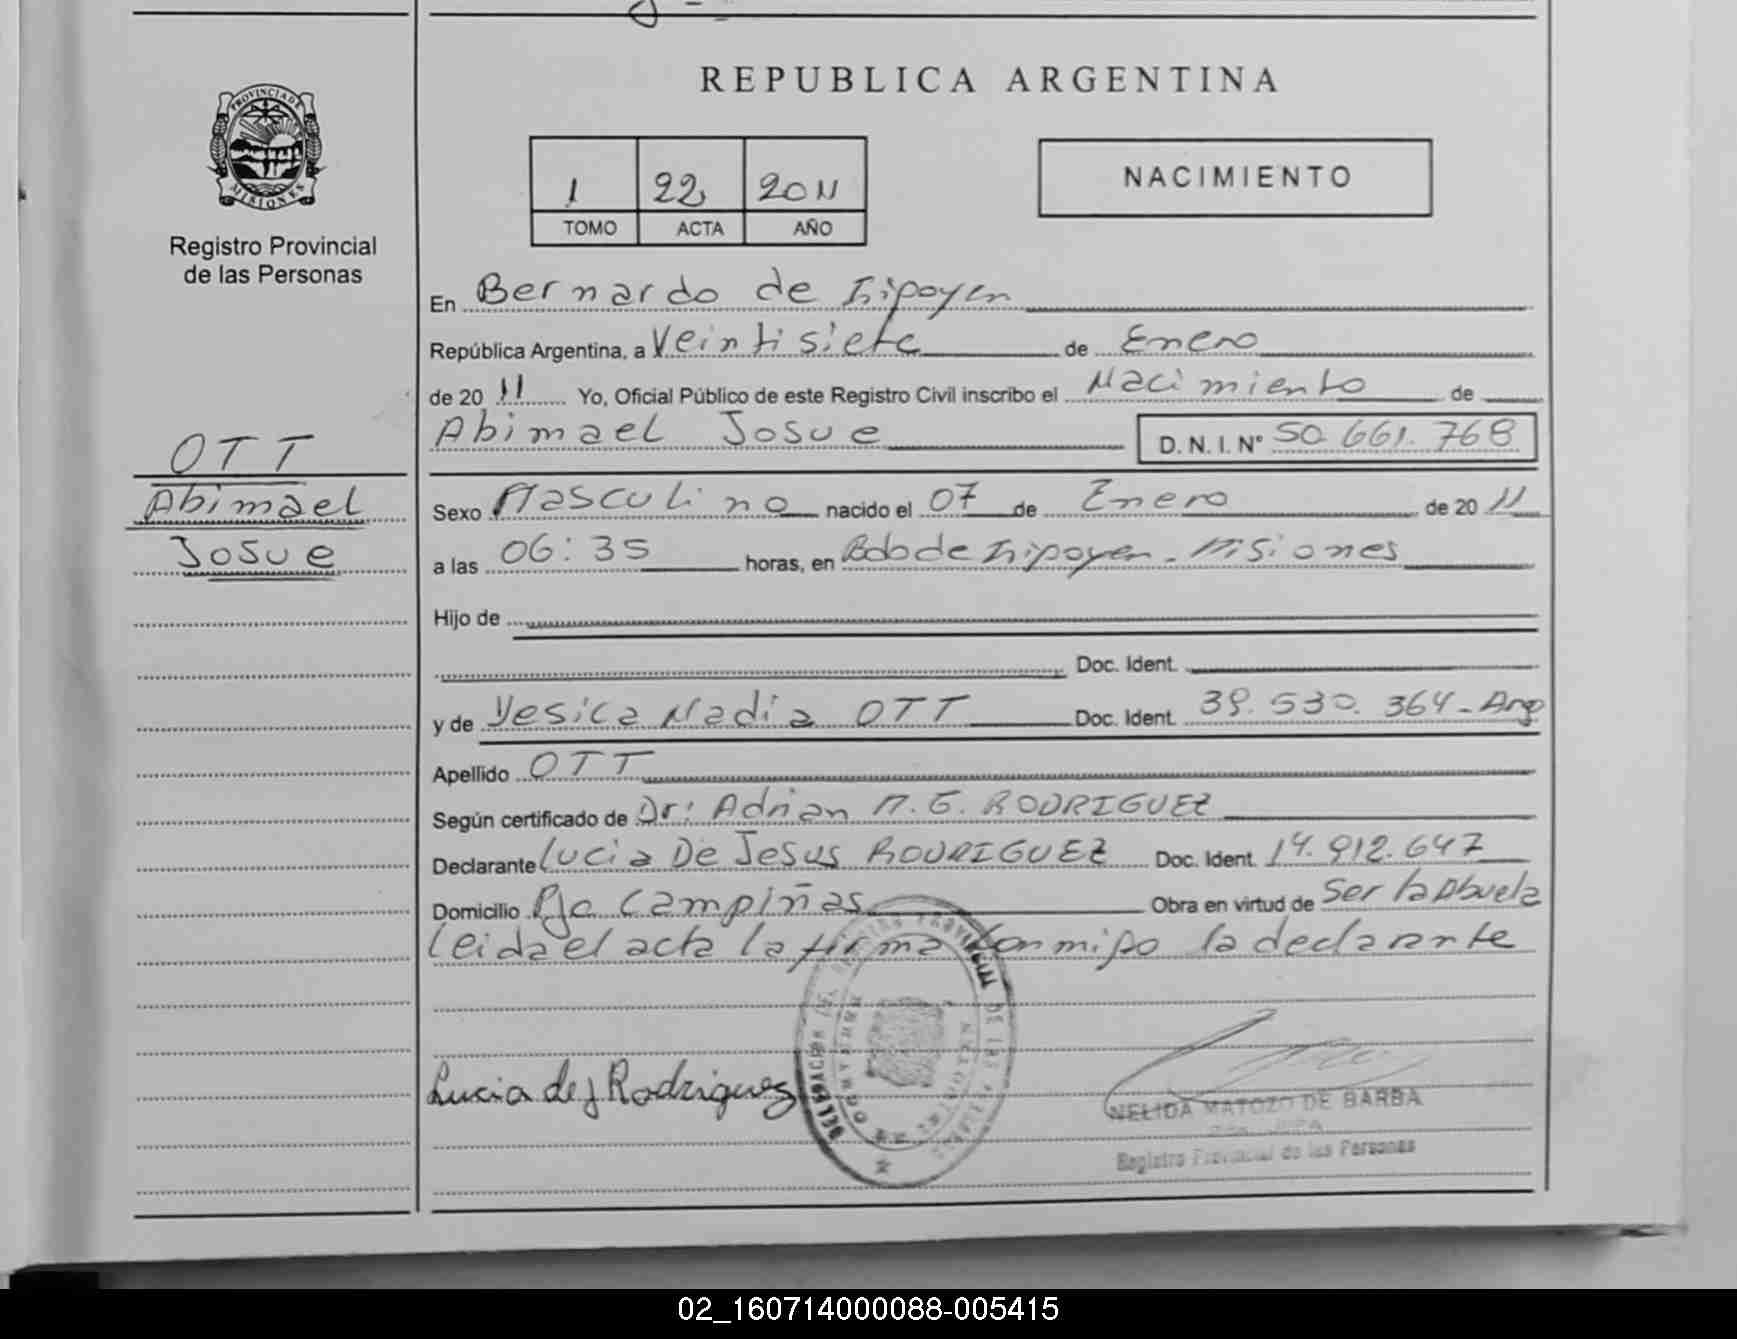 REPUBLICA ARGENTINA
PROVINCIA DE
MISIONES
Registro Provincial
de las Personas
1 22 2011
TOMO ACTA AÑO
NACIMIENTO
En Bernardo de Irigoyen
República Argentina, a Veintisiete de Enero
de 20 11 Yo, Oficial Público de este Registro Civil inscribo el Nacimiento de
Abimael Josue D. N. I. N° 50.661.768
OTT
Abimael
Josue
Sexo Masculino nacido el 07 de Enero de 20 11
a las 06:35 horas, en Bdo de Irigoyen - Misiones
Hijo de
Doc. Ident.
y de Yesica Nadia OTT Doc. Ident. 39.530.364 - Arg
Apellido OTT
Según certificado de Dr: Adrian M. G. RODRIGUEZ
Declarante Lucia De Jesus RODRIGUEZ Doc. Ident. 14.912.647
Domicilio Pje Campiñas Obra en virtud de Ser la Abuela
leida el acta la firma conmigo la declarante
Lucia de J Rodriguez
NELIDA MATOZO DE BARBA
Registro Provincial de las Personas
02_160714000088-005415